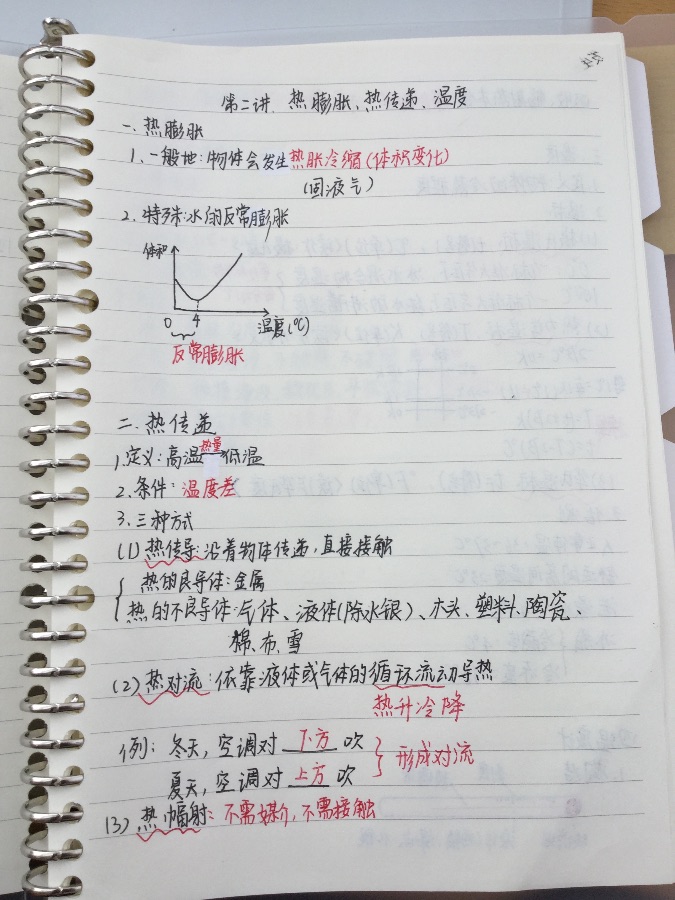 第二讲. 热膨胀、热传递、温度
一、热膨胀
1. 一般地:物体会发生热胀冷缩(体积变化)
(固液气)
2. 特殊:水的反常膨胀
体积
0 4 温度(℃)
反常膨胀
二、热传递
1.定义:高温 热量→ 低温
2.条件:温度差
3.三种方式
(1)热传导:沿着物体传递,直接接触
热的良导体:金属
热的不良导体:气体、液体(除水银)、木头、塑料、陶瓷、
棉、布、雪
(2)热对流:依靠液体或气体的循环流动导热
热升冷降
例:冬天,空调对 下方 吹
夏天,空调对 上方 吹 } 形成对流
(3)热幅射:不需媒介,不需接触